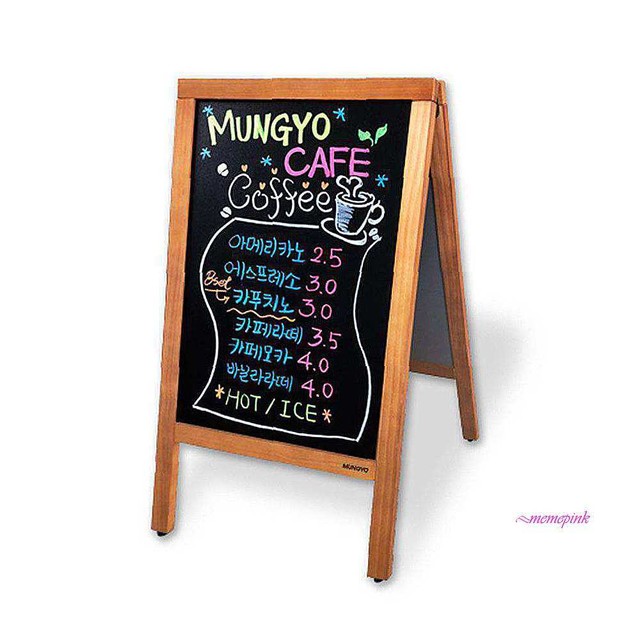 MUNGYO
CAFE
Coffee
아메리카노 2.5
에스프레소 3.0
Best
카푸치노 3.0
카페라떼 3.5
카페모카 4.0
바닐라라떼 4.0
*HOT / ICE*
MUNGYO
~memepink